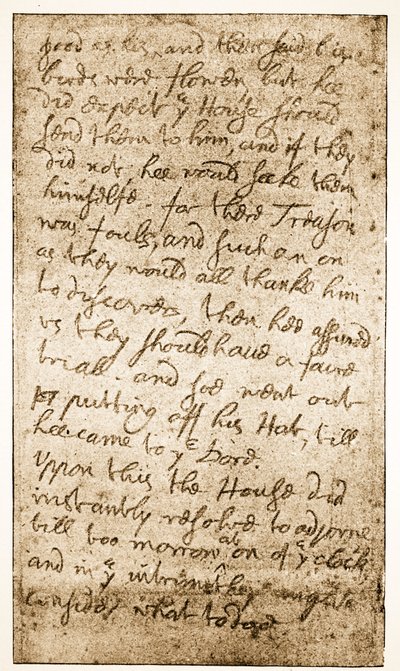 good as his, and then said his
birds were flowen, but hee
did expect yͤ House should
send them to him, and if they
did not, hee would seeke them
himselfe. for there Treason
was foule, and such an on
as they would all thanke him
to discover, then hee assured
us they should have a faire
triall. and soe went out
putting off his Hat, till
hee came to yͤ Dore.
Uppon this the House did
instantly resolve to adjorne
till too morrow at on of yͤ clock
and in yͤ intrim they might
consider what to doe